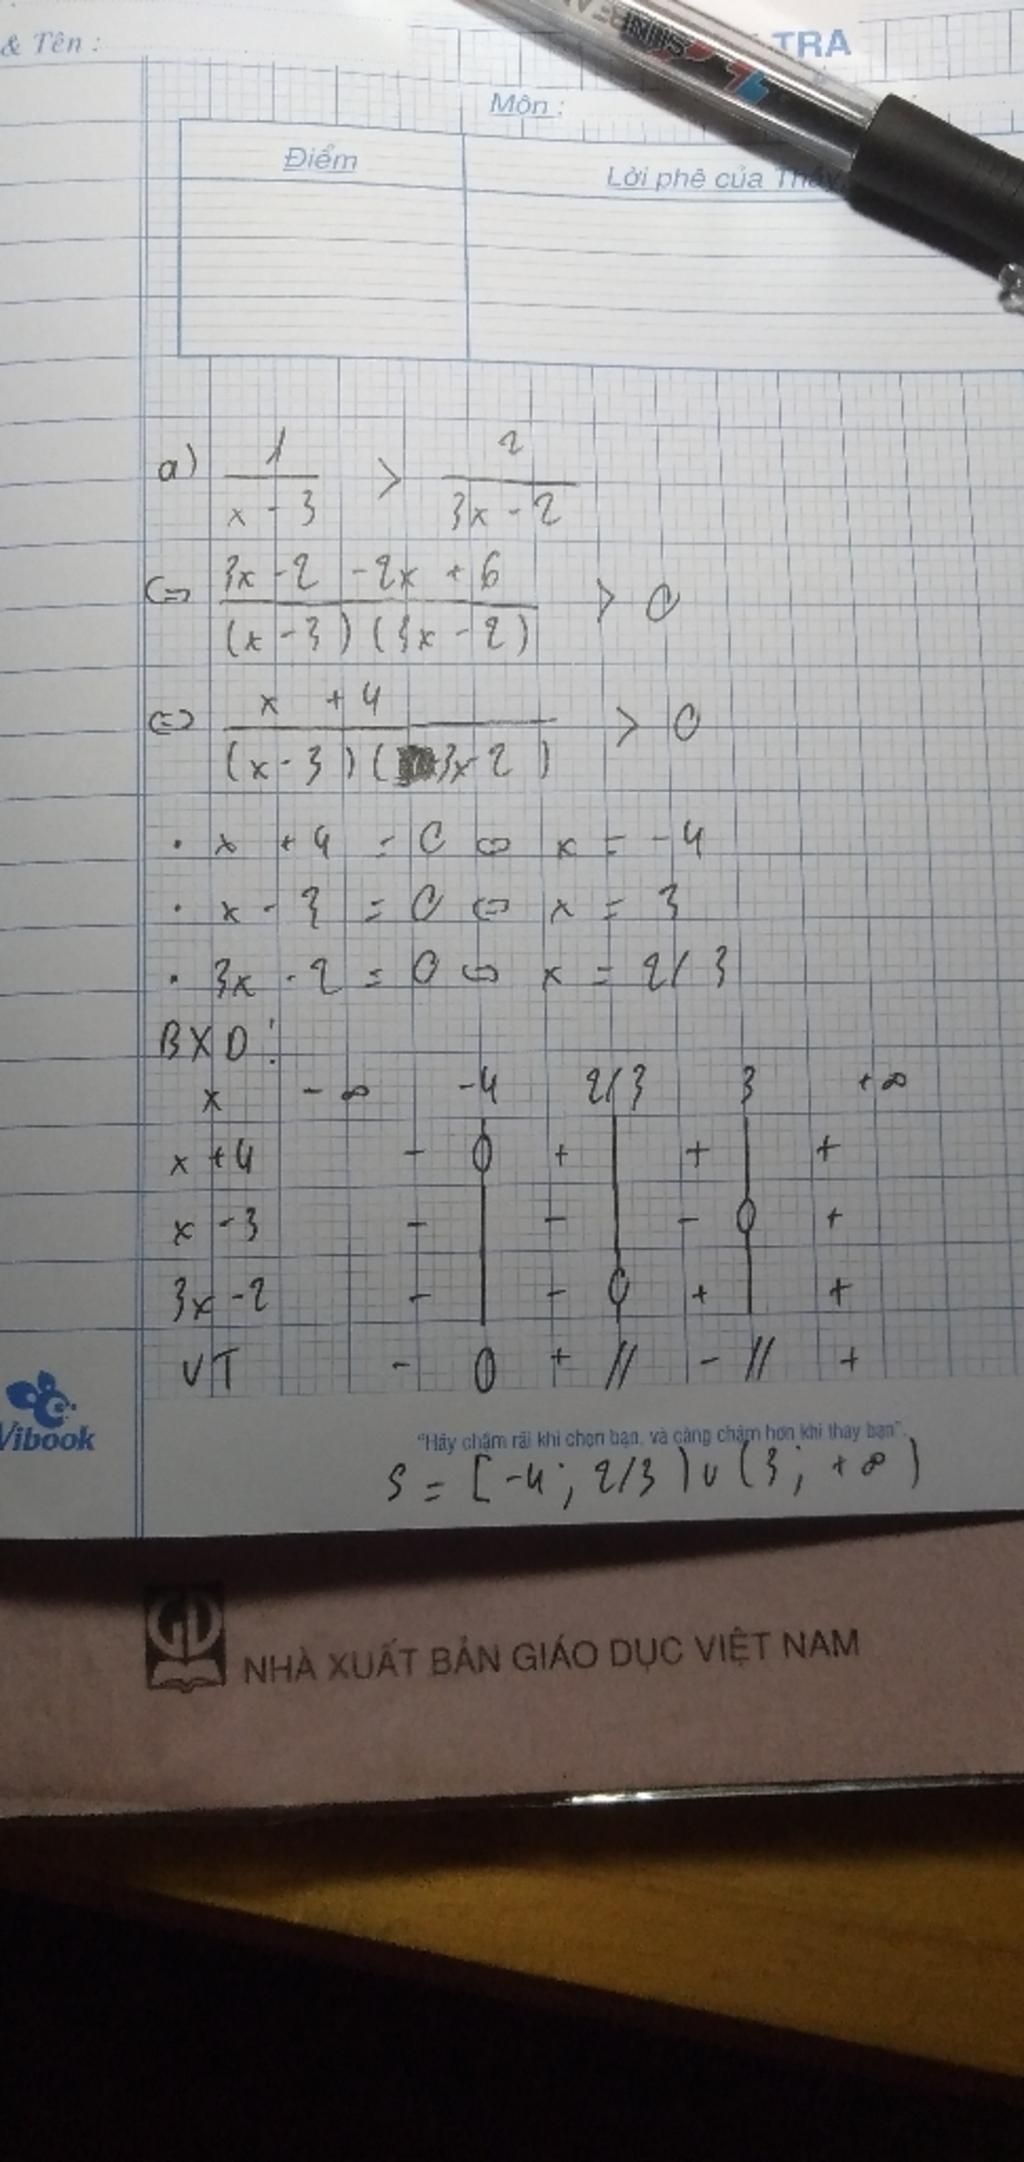 & Tên :
TRA
Môn :
Điểm
Lời phê của Thầy
a) 1/(x - 3) > 2/(3x - 2)
<=> (3x - 2 - 2x + 6)/((x - 3)(3x - 2)) > 0
<=> (x + 4)/((x - 3)(3x - 2)) > 0
· x + 4 = 0 <=> x = -4
· x - 3 = 0 <=> x = 3
· 3x - 2 = 0 <=> x = 2/3
BXD :
x -∞ -4 2/3 3 +∞
x + 4 - 0 + | + | +
x - 3 - | - | - 0 +
3x - 2 - | - 0 + | +
VT - 0 + || - || +
Vibook
"Hãy chậm rãi khi chọn bạn, và càng chậm hơn khi thay bạn".
S = [-4 ; 2/3) ∪ (3 ; +∞)
GD
NHÀ XUẤT BẢN GIÁO DỤC VIỆT NAM